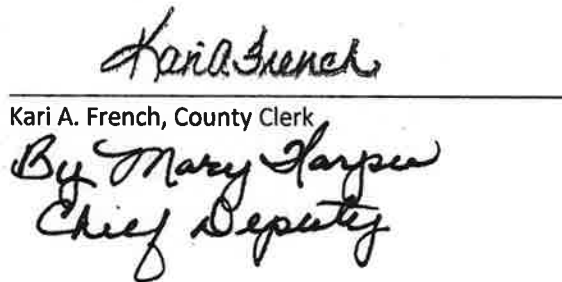 Kari A. French
Kari A. French, County Clerk
By Mary Harper
Chief Deputy